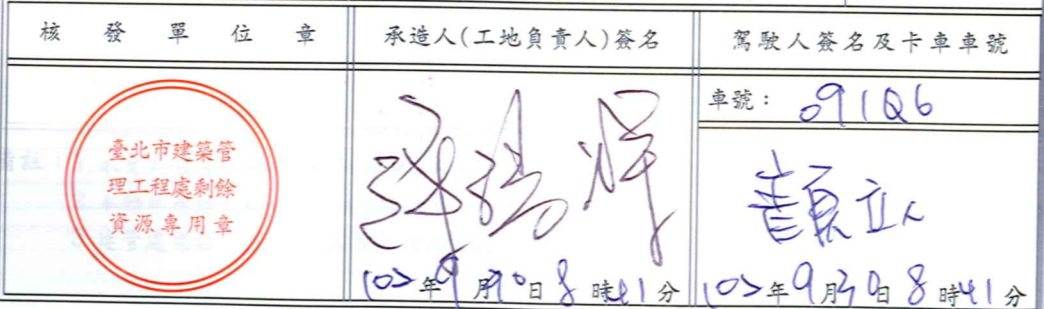 核發單位章
承造人(工地負責人)簽名
駕駛人簽名及卡車車號
臺北市建築管
理工程處剩餘
資源專用章
許瑞輝
年9月30日8時41分
車號：091Q6
顏立人
年9月30日8時41分